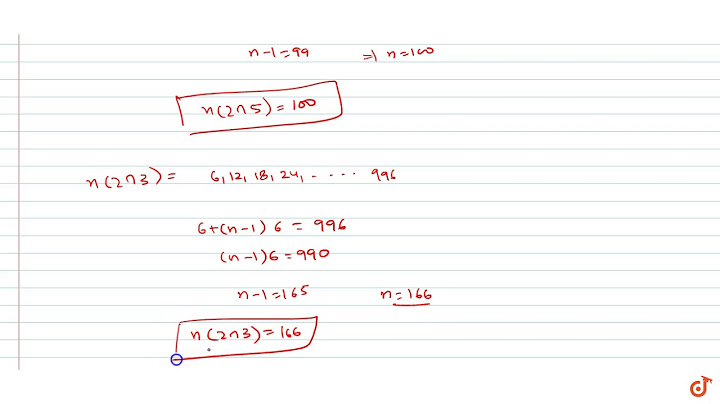 n-1=99 ⇒ n=100
n(2∩5)=100
n(2∩3)= 6,12,18,24,..... 996
6+(n-1)6=996
(n-1)6=990
n-1=165 n=166
n(2∩3)=166